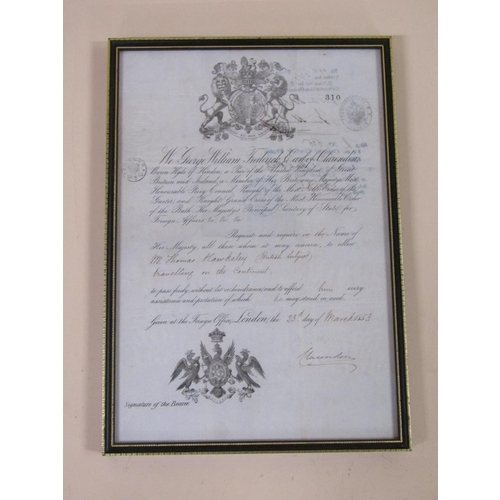 310
We George William Frederick, Earl of Clarendon,
Baron Hyde of Hindon, a Peer of the United Kingdom of Great
Britain and Ireland, a Member of Her Britannic Majesty's Most
Honourable Privy Council, Knight of the Most Noble Order of the
Garter, and Knight Grand Cross of the Most Honourable Order
of the Bath, Her Majesty's Principal Secretary of State for
Foreign Affairs &c. &c. &c.
Request and require in the Name of
Her Majesty, all those whom it may concern, to allow
Mr Thomas Hawksley (British Subject)
travelling on the Continent
to pass freely without let or hindrance, and to afford him every
assistance and protection of which he may stand in need.
Given at the Foreign Office, London, the 23d day of March 1853
Clarendon
Signature of the Bearer